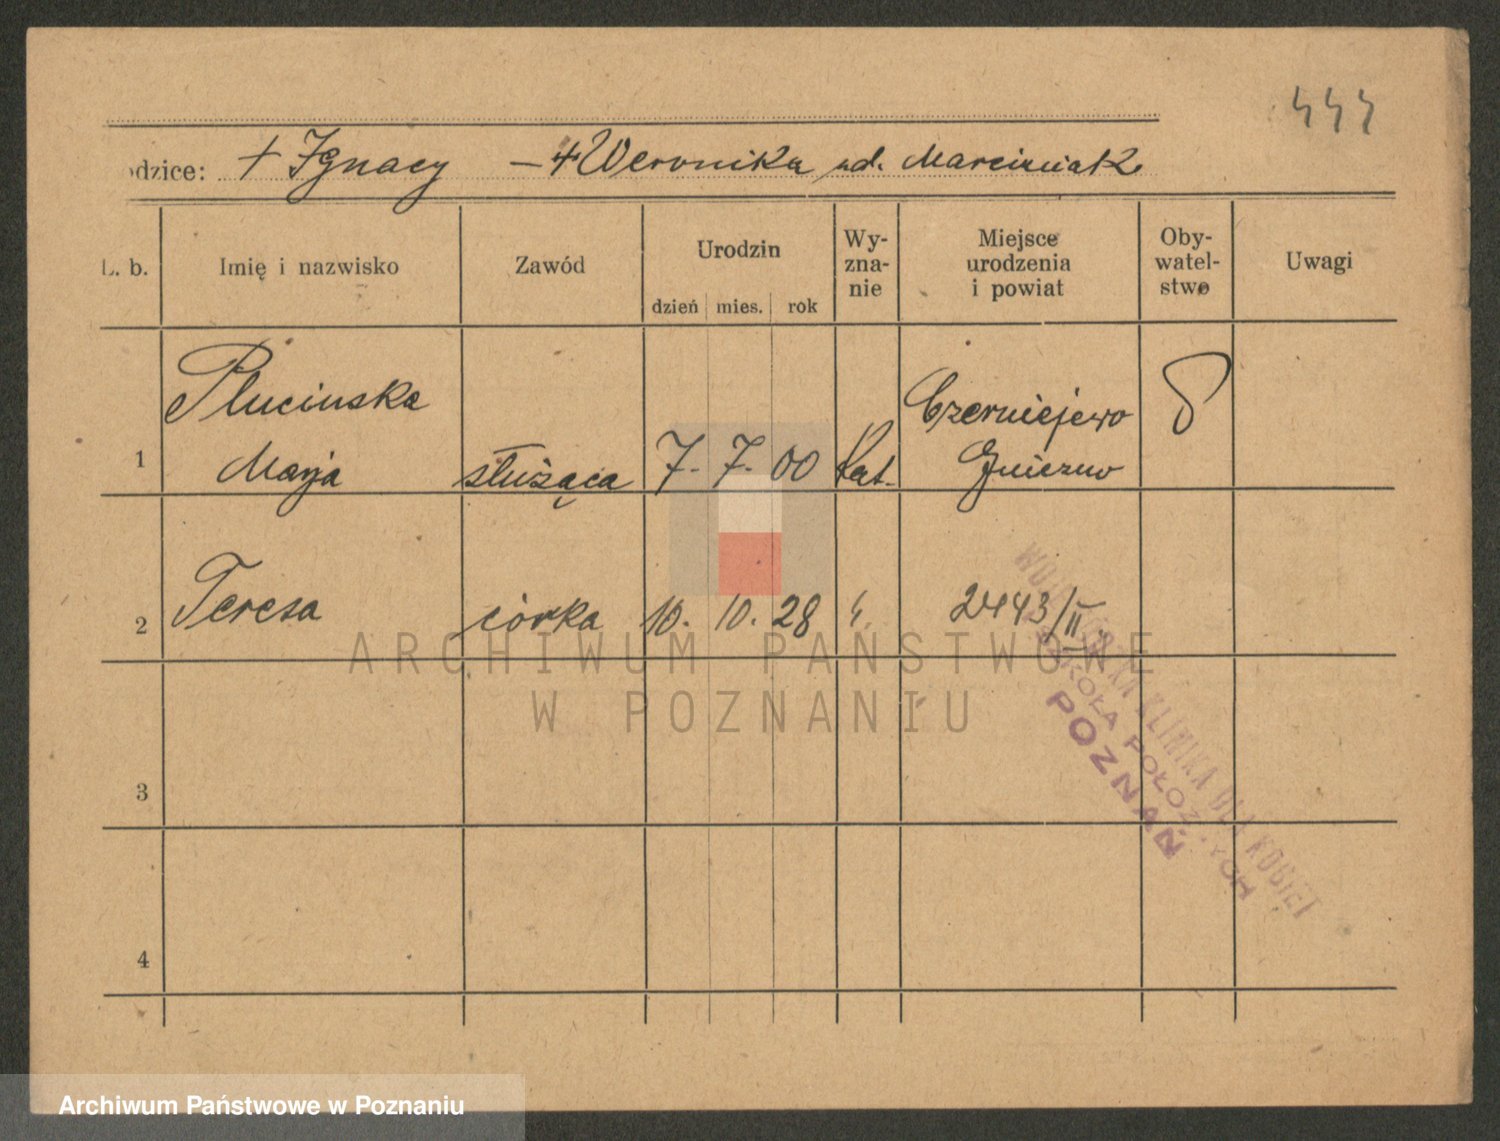 444
odzice: + Ignacy — + Weronika zd. Marciniak
L. b.
Imię i nazwisko
Zawód
Urodzin
dzień mies. rok
Wy-
zna-
nie
Miejsce
urodzenia
i powiat
Oby-
watel-
stwo
Uwagi
1
Plucinska
Marja
służąca
7. 7. 00
Kat.
Czerniejewo
Gniezno
2
Teresa
córka
10. 10. 28
2443/II
3
4
KLINIKA DLA KOBIET
SZKOŁA POŁOŻNYCH
POZNAŃ
ARCHIWUM PAŃSTWOWE
W POZNANIU
Archiwum Państwowe w Poznaniu